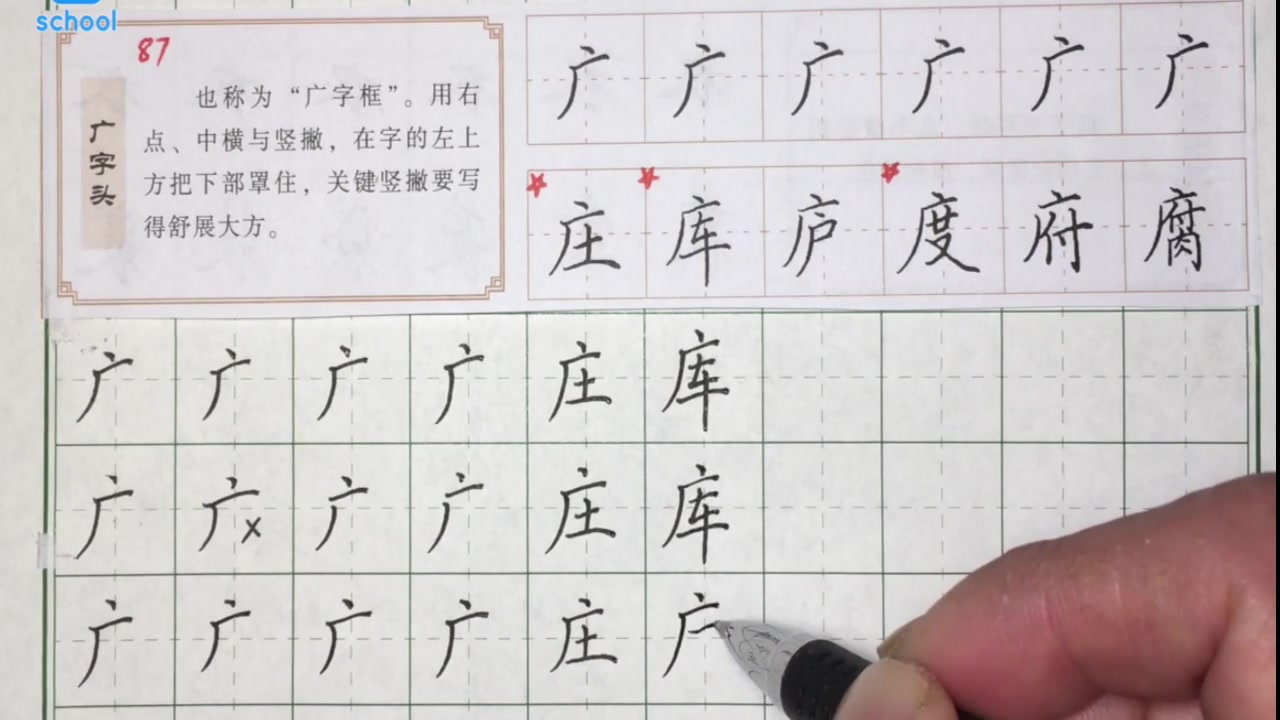 school
87
广字头
也称为“广字框”。用右
点、中横与竖撇，在字的左上
方把下部罩住，关键竖撇要写
得舒展大方。
广 广 广 广 广 广
庄 库 庐 度 府 腐
广 广 广 广 庄 库
广 广 x 广 广 庄 库
广 广 广 广 庄